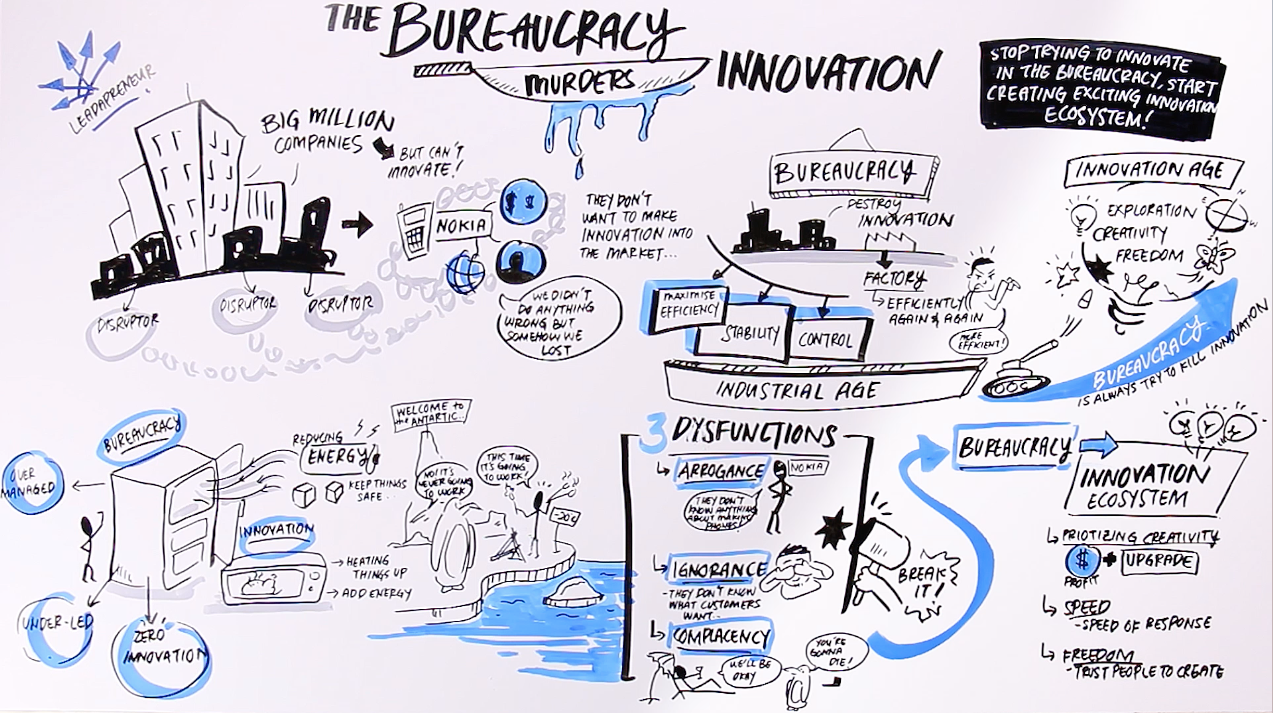 THE BUREAUCRACY
MURDERS
INNOVATION
STOP TRYING TO INNOVATE
IN THE BUREAUCRACY, START
CREATING EXCITING INNOVATION
ECOSYSTEM!
LEADAPRENEUR
BIG MILLION
COMPANIES
BUT CAN'T
INNOVATE!
NOKIA
$ $
DISRUPTOR
DISRUPTOR
DISRUPTOR
THEY DON'T
WANT TO MAKE
INNOVATION INTO
THE MARKET...
WE DIDN'T
DO ANYTHING
WRONG BUT
SOMEHOW WE
LOST
BUREAUCRACY
DESTROY
INNOVATION
FACTORY
EFFICIENTLY
AGAIN & AGAIN
MORE
EFFICIENT!
MAXIMISE
EFFICIENCY
STABILITY
CONTROL
INDUSTRIAL AGE
INNOVATION AGE
EXPLORATION
CREATIVITY
FREEDOM
BUREAUCRACY
IS ALWAYS TRY TO KILL INNOVATION
BUREAUCRACY
OVER
MANAGED
UNDER-LED
ZERO
INNOVATION
REDUCING
ENERGY
KEEP THINGS
SAFE...
INNOVATION
HEATING
THINGS UP
ADD ENERGY
WELCOME to
the ANTARTIC..
NO! IT'S
NEVER GOING
TO WORK
THIS TIME
IT'S GOING
TO WORK!
-20°C
3 DYSFUNCTIONS
ARROGANCE
NOKIA
THEY DON'T
KNOW ANYTHING
ABOUT MAKING
PHONES!
IGNORANCE
- THEY DON'T KNOW
WHAT CUSTOMERS
WANT..
COMPLACENCY
WE'LL BE
OKAY
YOU'RE
GONNA
DIE!
BREAK
IT!
BUREAUCRACY
INNOVATION
ECOSYSTEM
PRIOTIZING CREATIVITY
$ + UPGRADE
PROFIT
SPEED
- SPEED OF RESPONSE
FREEDOM
- TRUST PEOPLE TO CREATE